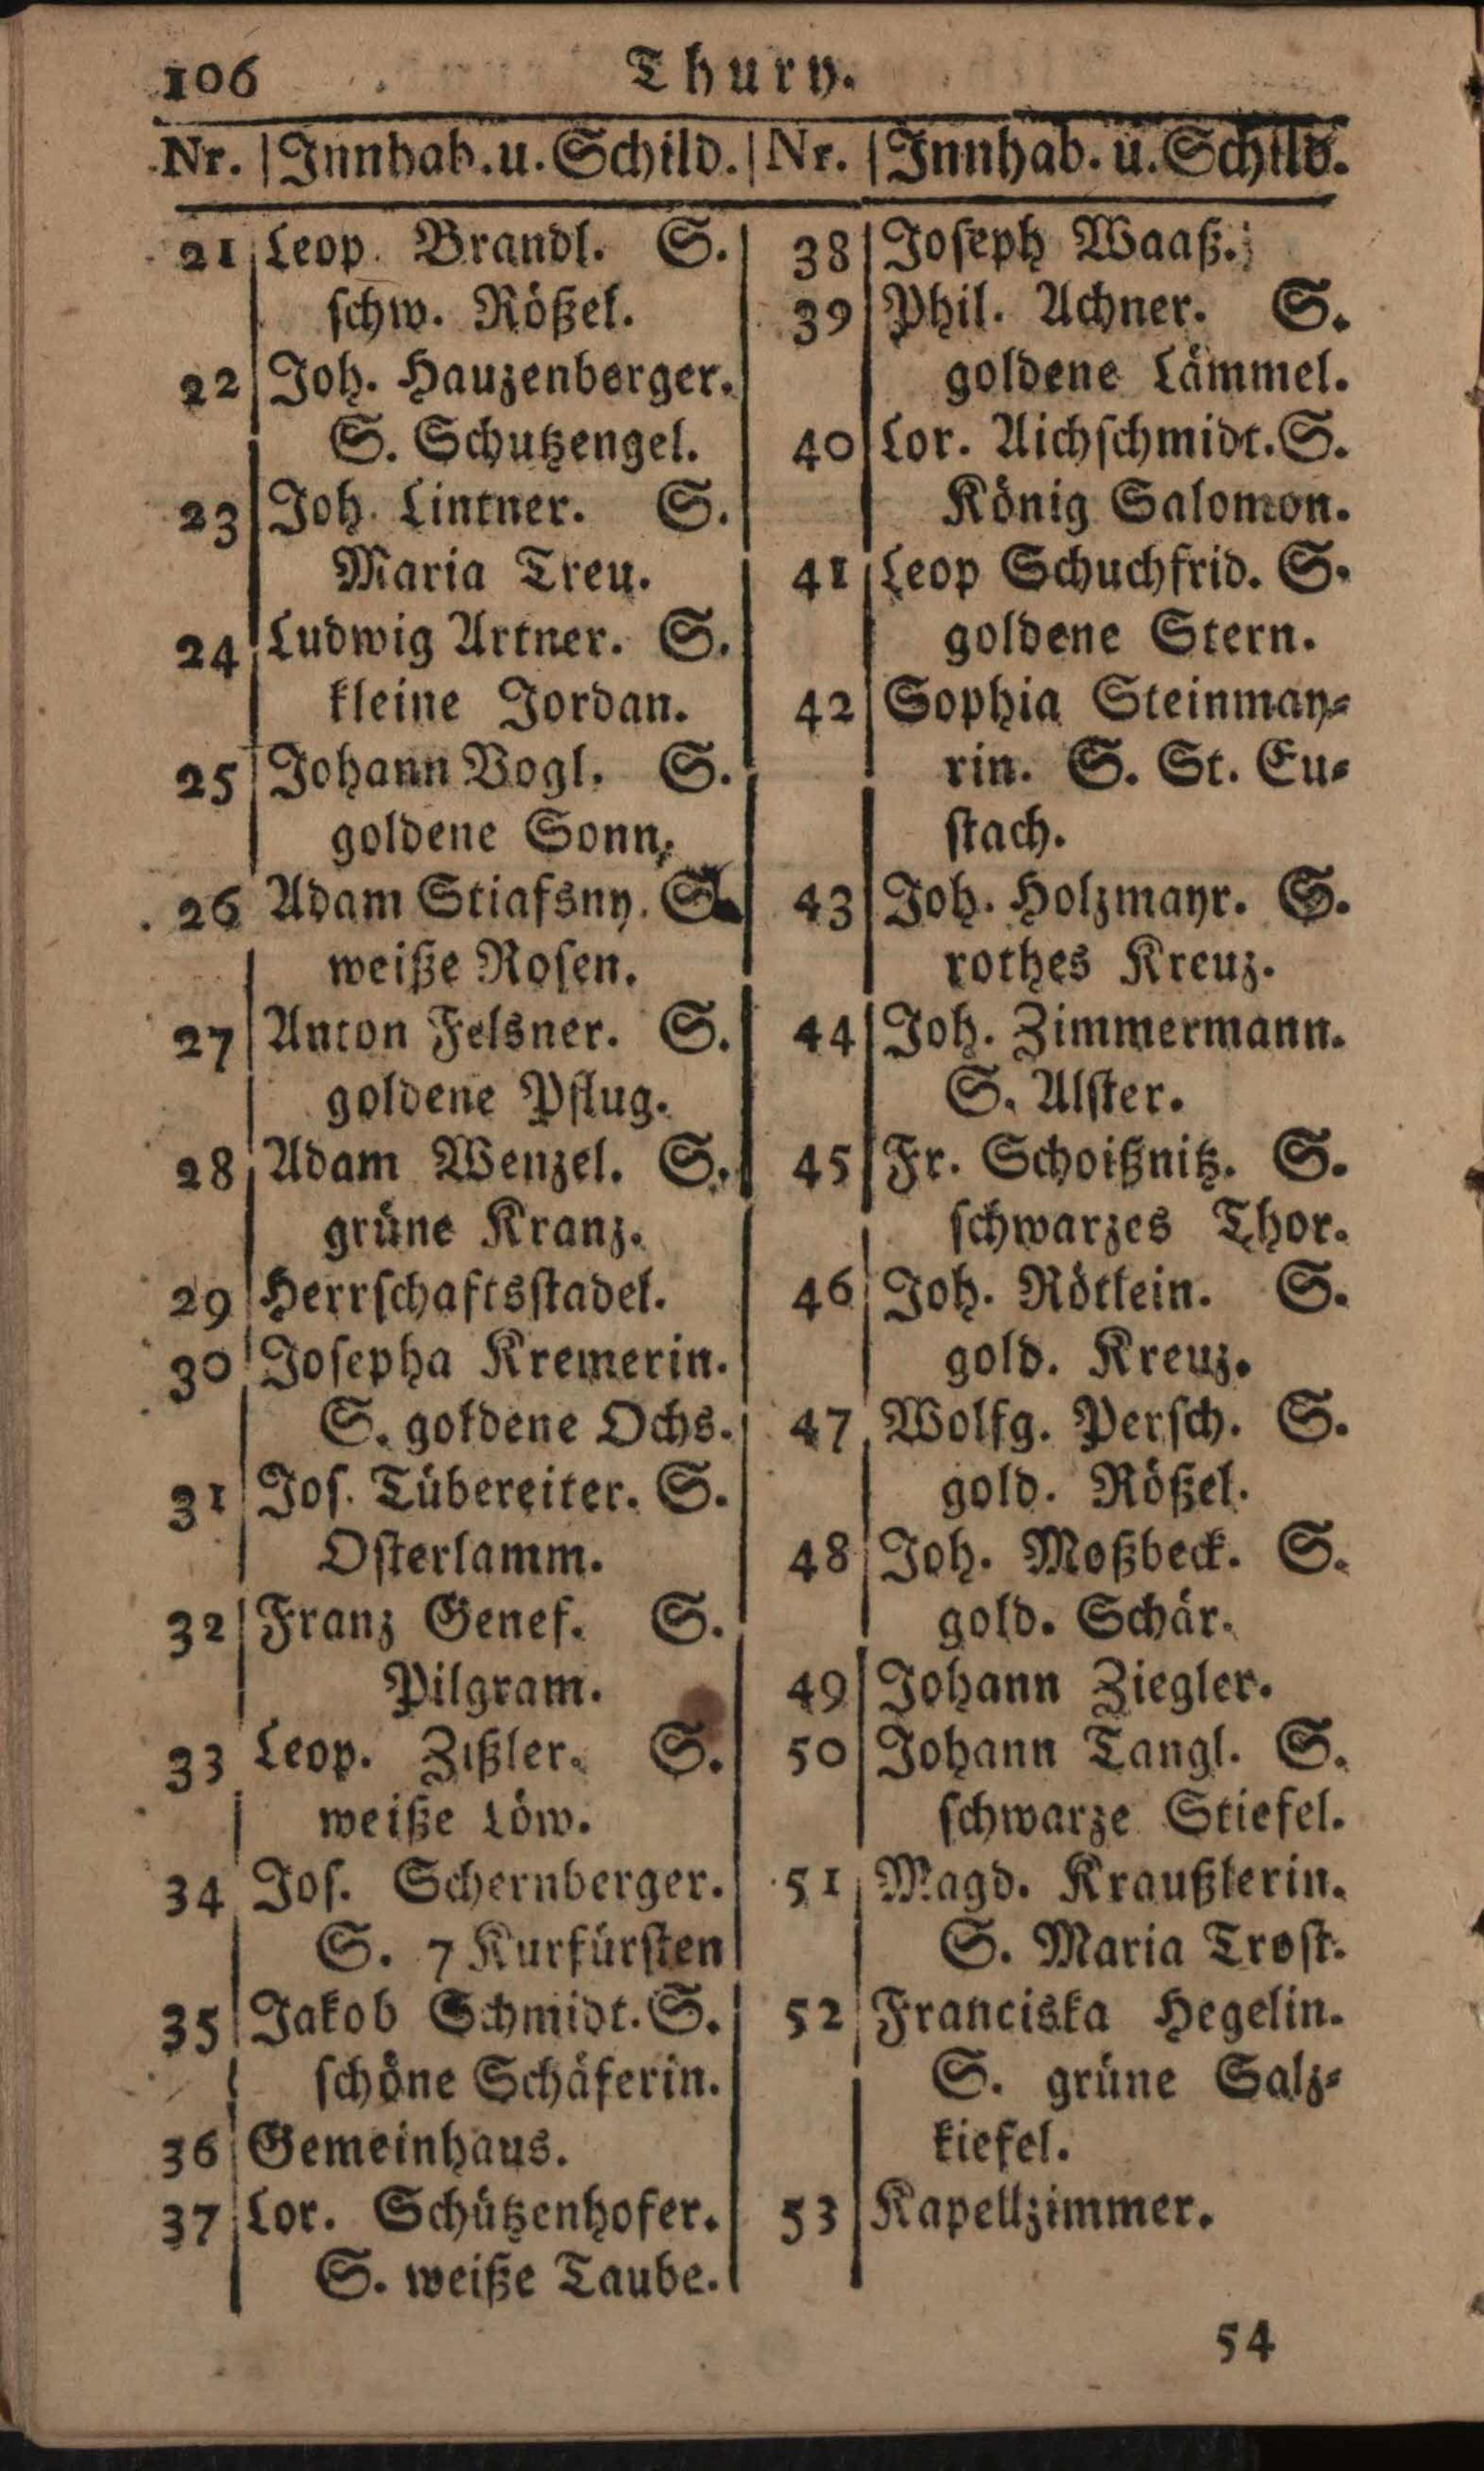 106 Thury.
Nr. | Innhab. u. Schild. | Nr. | Innhab. u. Schild.
21 Leop. Brandl. S.
schw. Rößel.
22 Joh. Hauzenberger.
S. Schutzengel.
23 Joh. Lintner. S.
Maria Treu.
24 Ludwig Artner. S.
kleine Jordan.
25 Johann Vogl. S.
goldene Sonn.
26 Adam Stiafsny. S.
weiße Rosen.
27 Anton Felsner. S.
goldene Pflug.
28 Adam Wenzel. S.
grüne Kranz.
29 Herrschaftsstadel.
30 Josepha Kremerin.
S. goldene Ochs.
31 Jos. Tübereiter. S.
Osterlamm.
32 Franz Genef. S.
Pilgram.
33 Leop. Zißler. S.
weiße Löw.
34 Jos. Schernberger.
S. 7 Kurfürsten
35 Jakob Schmidt. S.
schöne Schäferin.
36 Gemeinhaus.
37 Lor. Schützenhofer.
S. weiße Taube.
38 Joseph Waaß.
39 Phil. Achner. S.
goldene Lämmel.
40 Lor. Aichschmidt. S.
König Salomon.
41 Leop Schuchfrid. S.
goldene Stern.
42 Sophia Steinmay-
rin. S. St. Eu-
stach.
43 Joh. Holzmayr. S.
rothes Kreuz.
44 Joh. Zimmermann.
S. Alster.
45 Fr. Schoißnitz. S.
schwarzes Thor.
46 Joh. Rötlein. S.
gold. Kreuz.
47 Wolfg. Persch. S.
gold. Rößel.
48 Joh. Moßbeck. S.
gold. Schär.
49 Johann Ziegler.
50 Johann Tangl. S.
schwarze Stiefel.
51 Magd. Kraußlerin.
S. Maria Trost.
52 Franciska Hegelin.
S. grüne Salz-
kiefel.
53 Kapellzimmer.
54